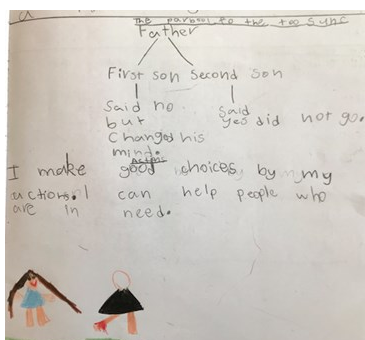 The parabol to the too Sync
Father
First son Second son
Said no
but
Changed his
mind.
Said
yes did not go.
Actions
I make good choices by my
actions. I can help people who
are in need.